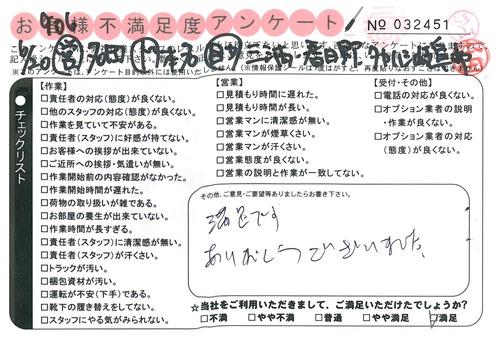 お客様不満足度アンケート
No 032451
チェックリスト
【作業】
□責任者の対応(態度)が良くない。
□他のスタッフの対応(態度)が良くない。
□作業を見ていて不安がある。
□責任者(スタッフ)に好感が持てない。
□お客様への挨拶が出来ていない。
□ご近所への挨拶・気遣いが無い。
□作業開始前の内容確認がなかった。
□作業開始時間が遅れた。
□荷物の取り扱いが雑である。
□お部屋の養生が出来ていない。
□作業時間が長すぎる。
□責任者(スタッフ)に清潔感が無い。
□責任者(スタッフ)が汗くさい。
□トラックが汚い。
□梱包資材が汚い。
□運転が不安(下手)である。
□靴下の履き替えをしてない。
□スタッフにやる気がみられない。
【営業】
□見積もり時間に遅れた。
□見積もり時間が長い。
□営業マンに清潔感が無い。
□営業マンが煙草くさい。
□営業マンが汗くさい。
□営業態度が良くない。
□営業の説明と作業が一致してない。
【受付・その他】
□電話の対応が良くない。
□オプション業者の説明
・作業が良くない。
□オプション業者の対応
(態度)が良くない。
その他、ご意見・ご要望等ありましたらお書き下さい。
満足です
ありがとうございました。
☆当社をご利用いただきまして、ご満足いただけたでしょうか?
□不満 □やや不満 □普通 □やや満足 □満足